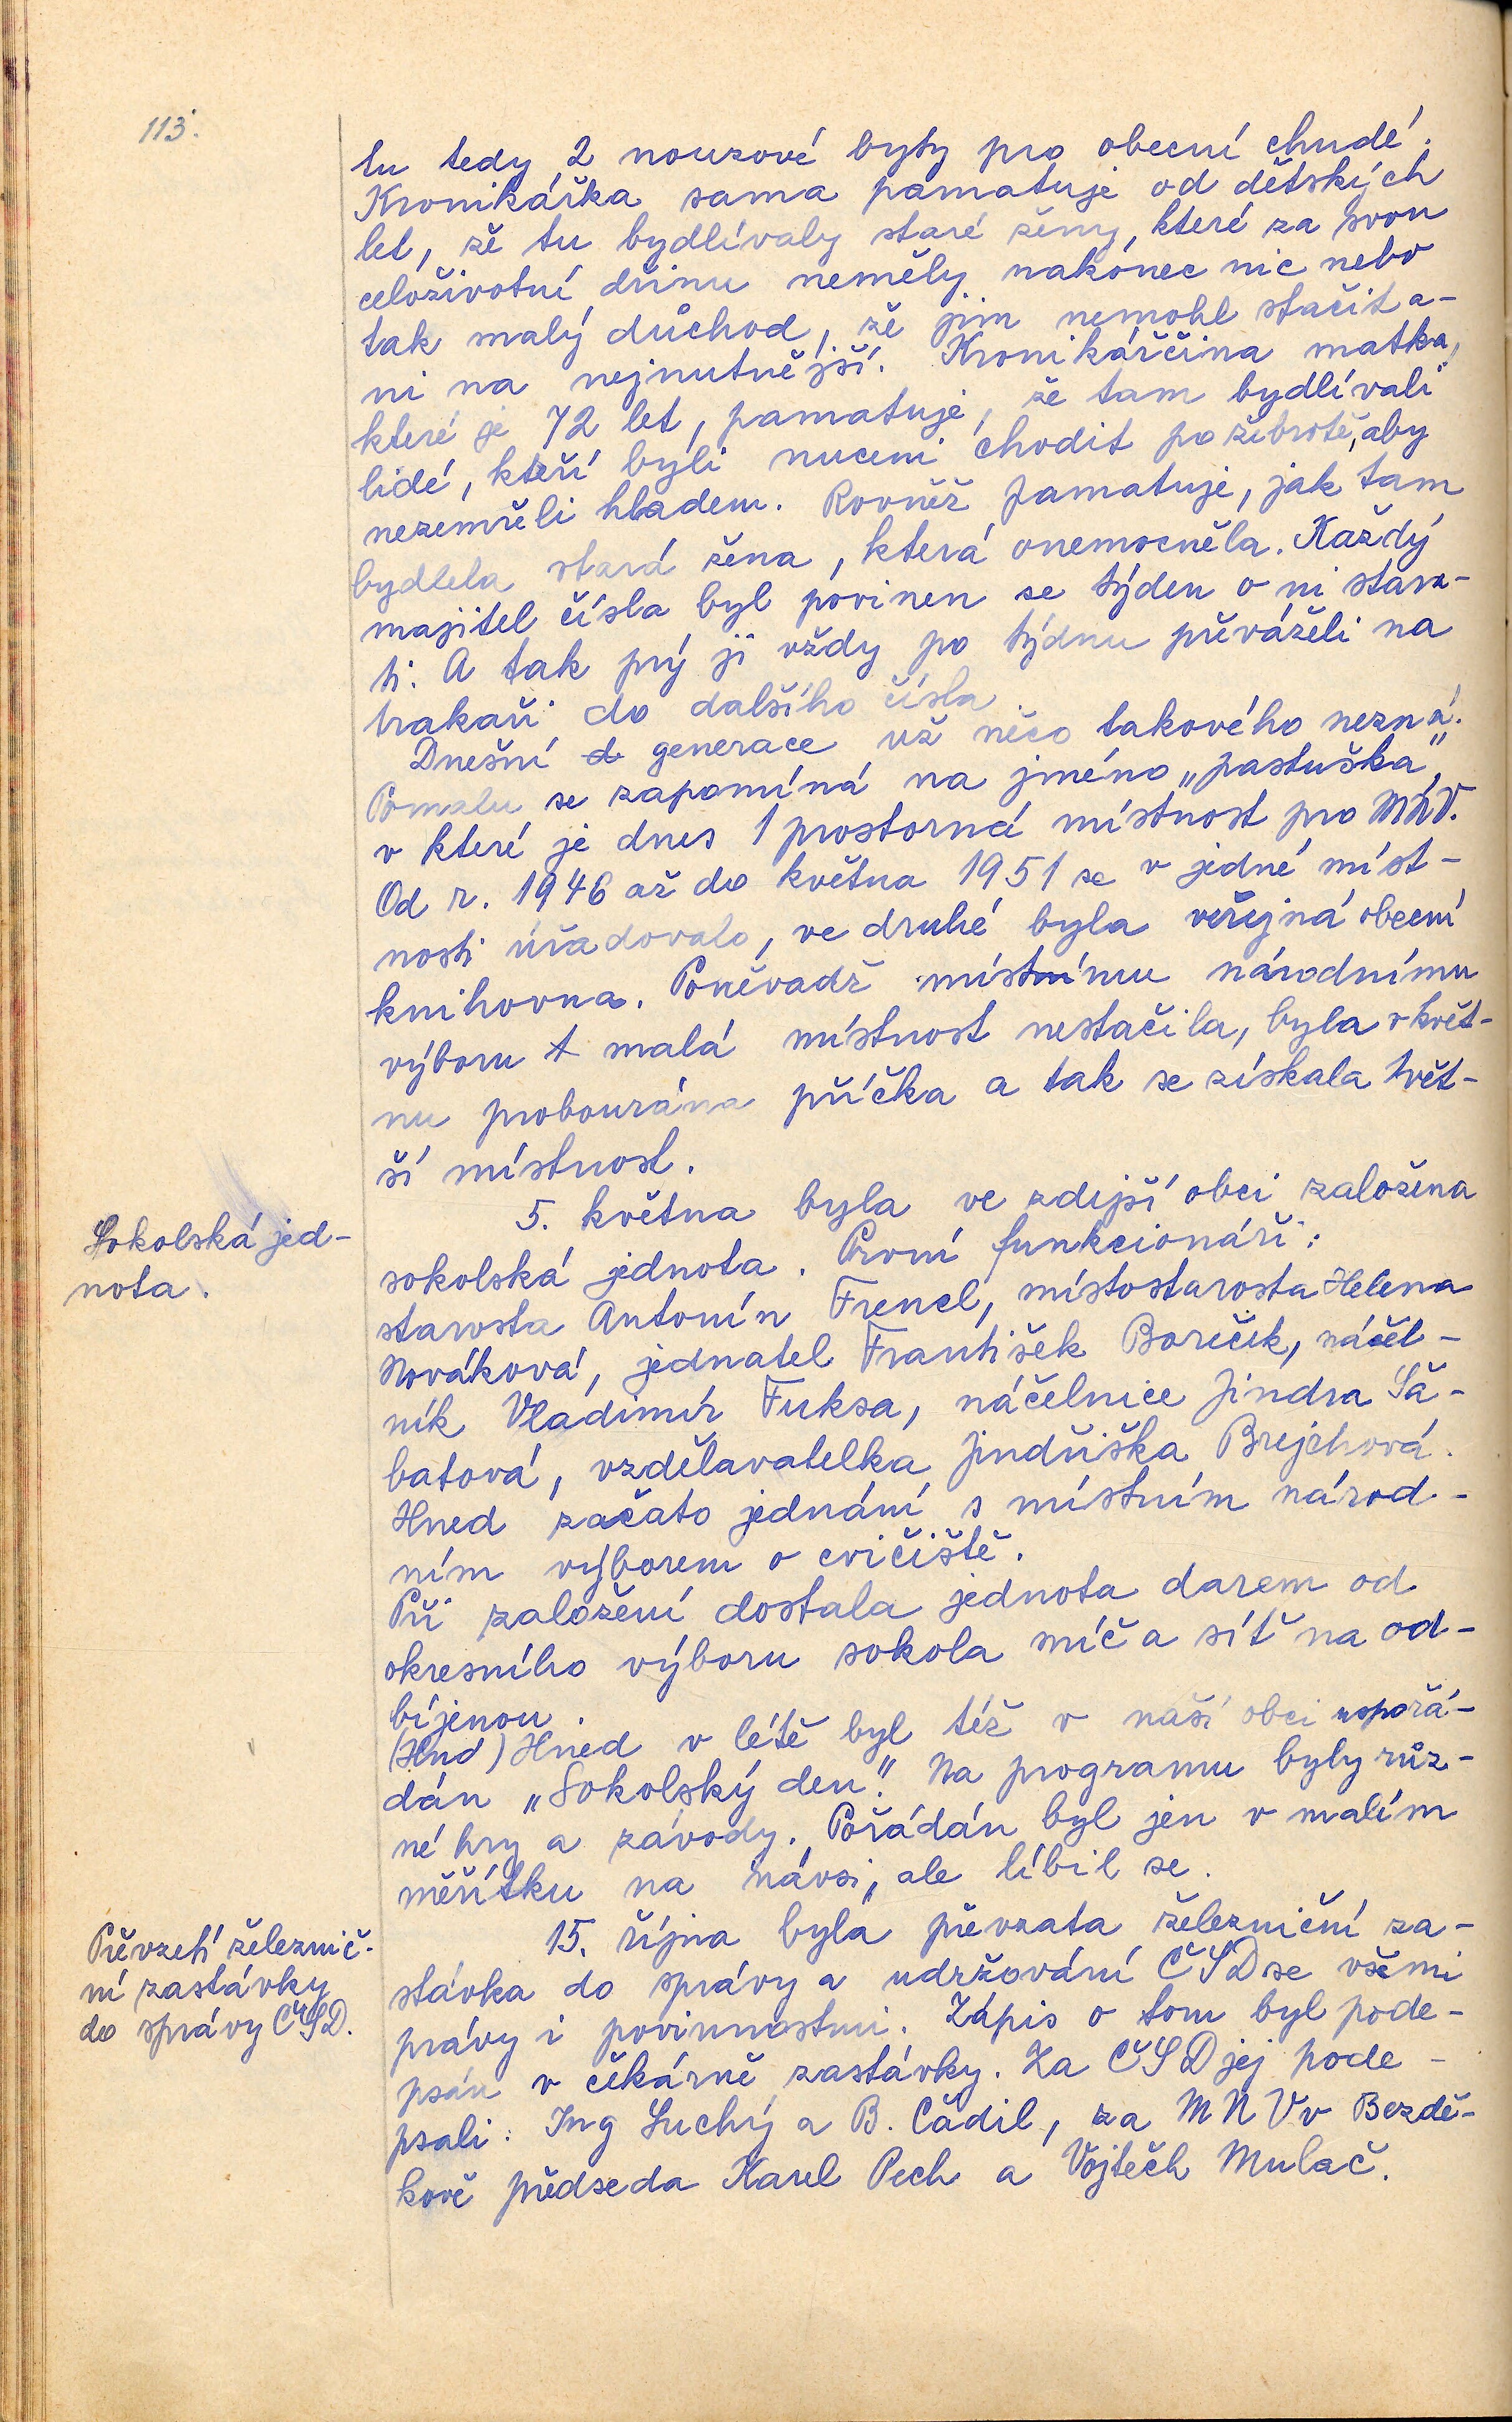 113.
tu tedy 2 nouzové byty pro obecní chudé.
Kronikářka sama pamatuje od dětských
let, že tu bydlívaly staré ženy, které za svou
celoživotní dřinu neměly nakonec nic nebo
tak malý důchod, že jim nemohl stačit a-
ni na nejnutnější. Kronikářčina matka,
které je 72 let, pamatuje, že tam bydlívali
lidé, kteří byli nuceni chodit po žebrotě, aby
nezemřeli hladem. Rovněž pamatuje, jak tam
bydlela stará žena, která onemocněla. Každý
majitel čísla byl povinen se týden o ni stara-
ti. A tak prý ji vždy po týdnu převáželi na
trakaři do dalšího čísla
Dnešní d generace už něco takového nezná.
Pomalu se zapomíná na jméno „pastuška",
v které je dnes 1 prostorná místnost pro MNV.
Od r. 1946 až do května 1951 se v jedné míst-
nosti úřadovalo, ve druhé byla veřejná obecní
knihovna. Poněvadž místnímu národnímu
výboru t malá místnost nestačila, byla v květ-
nu probourána příčka a tak se získala 1 vět-
ší místnost.
Sokolská jed-
nota.
5. května byla ve zdejší obci založena
sokolská jednota. První funkcionáři:
starosta Antonín Frencl, místostarosta Helena
Nováková, jednatel František Boreček, náčel-
ník Vladimír Fuksa, náčelnice Jindra Šá-
batová, vzdělavatelka Jindřiška Brejchová.
Hned začato jednání s místním národ-
ním výborem o cvičiště.
Při založení dostala jednota darem od
okresního výboru sokola míč a síť na od-
bíjenou.
(Hnd) Hned v létě byl též v naší obci uspořá-
dán „Sokolský den". Na programu byly růz-
né hry a závody. Pořádán byl jen v malém
měřítku na návsi, ale líbil se.
Převzetí železnič-
ní zastávky
do správy ČSD.
15. října byla převzata železniční za-
stávka do správy a udržování ČSD se všemi
právy i povinnostmi. Zápis o tom byl pode-
psán v čekárně zastávky. Za ČSD jej pode-
psali: Ing Suchý a B. Čádil, za MNV v Bezdě-
kově předseda Karel Pech a Vojtěch Mulač.